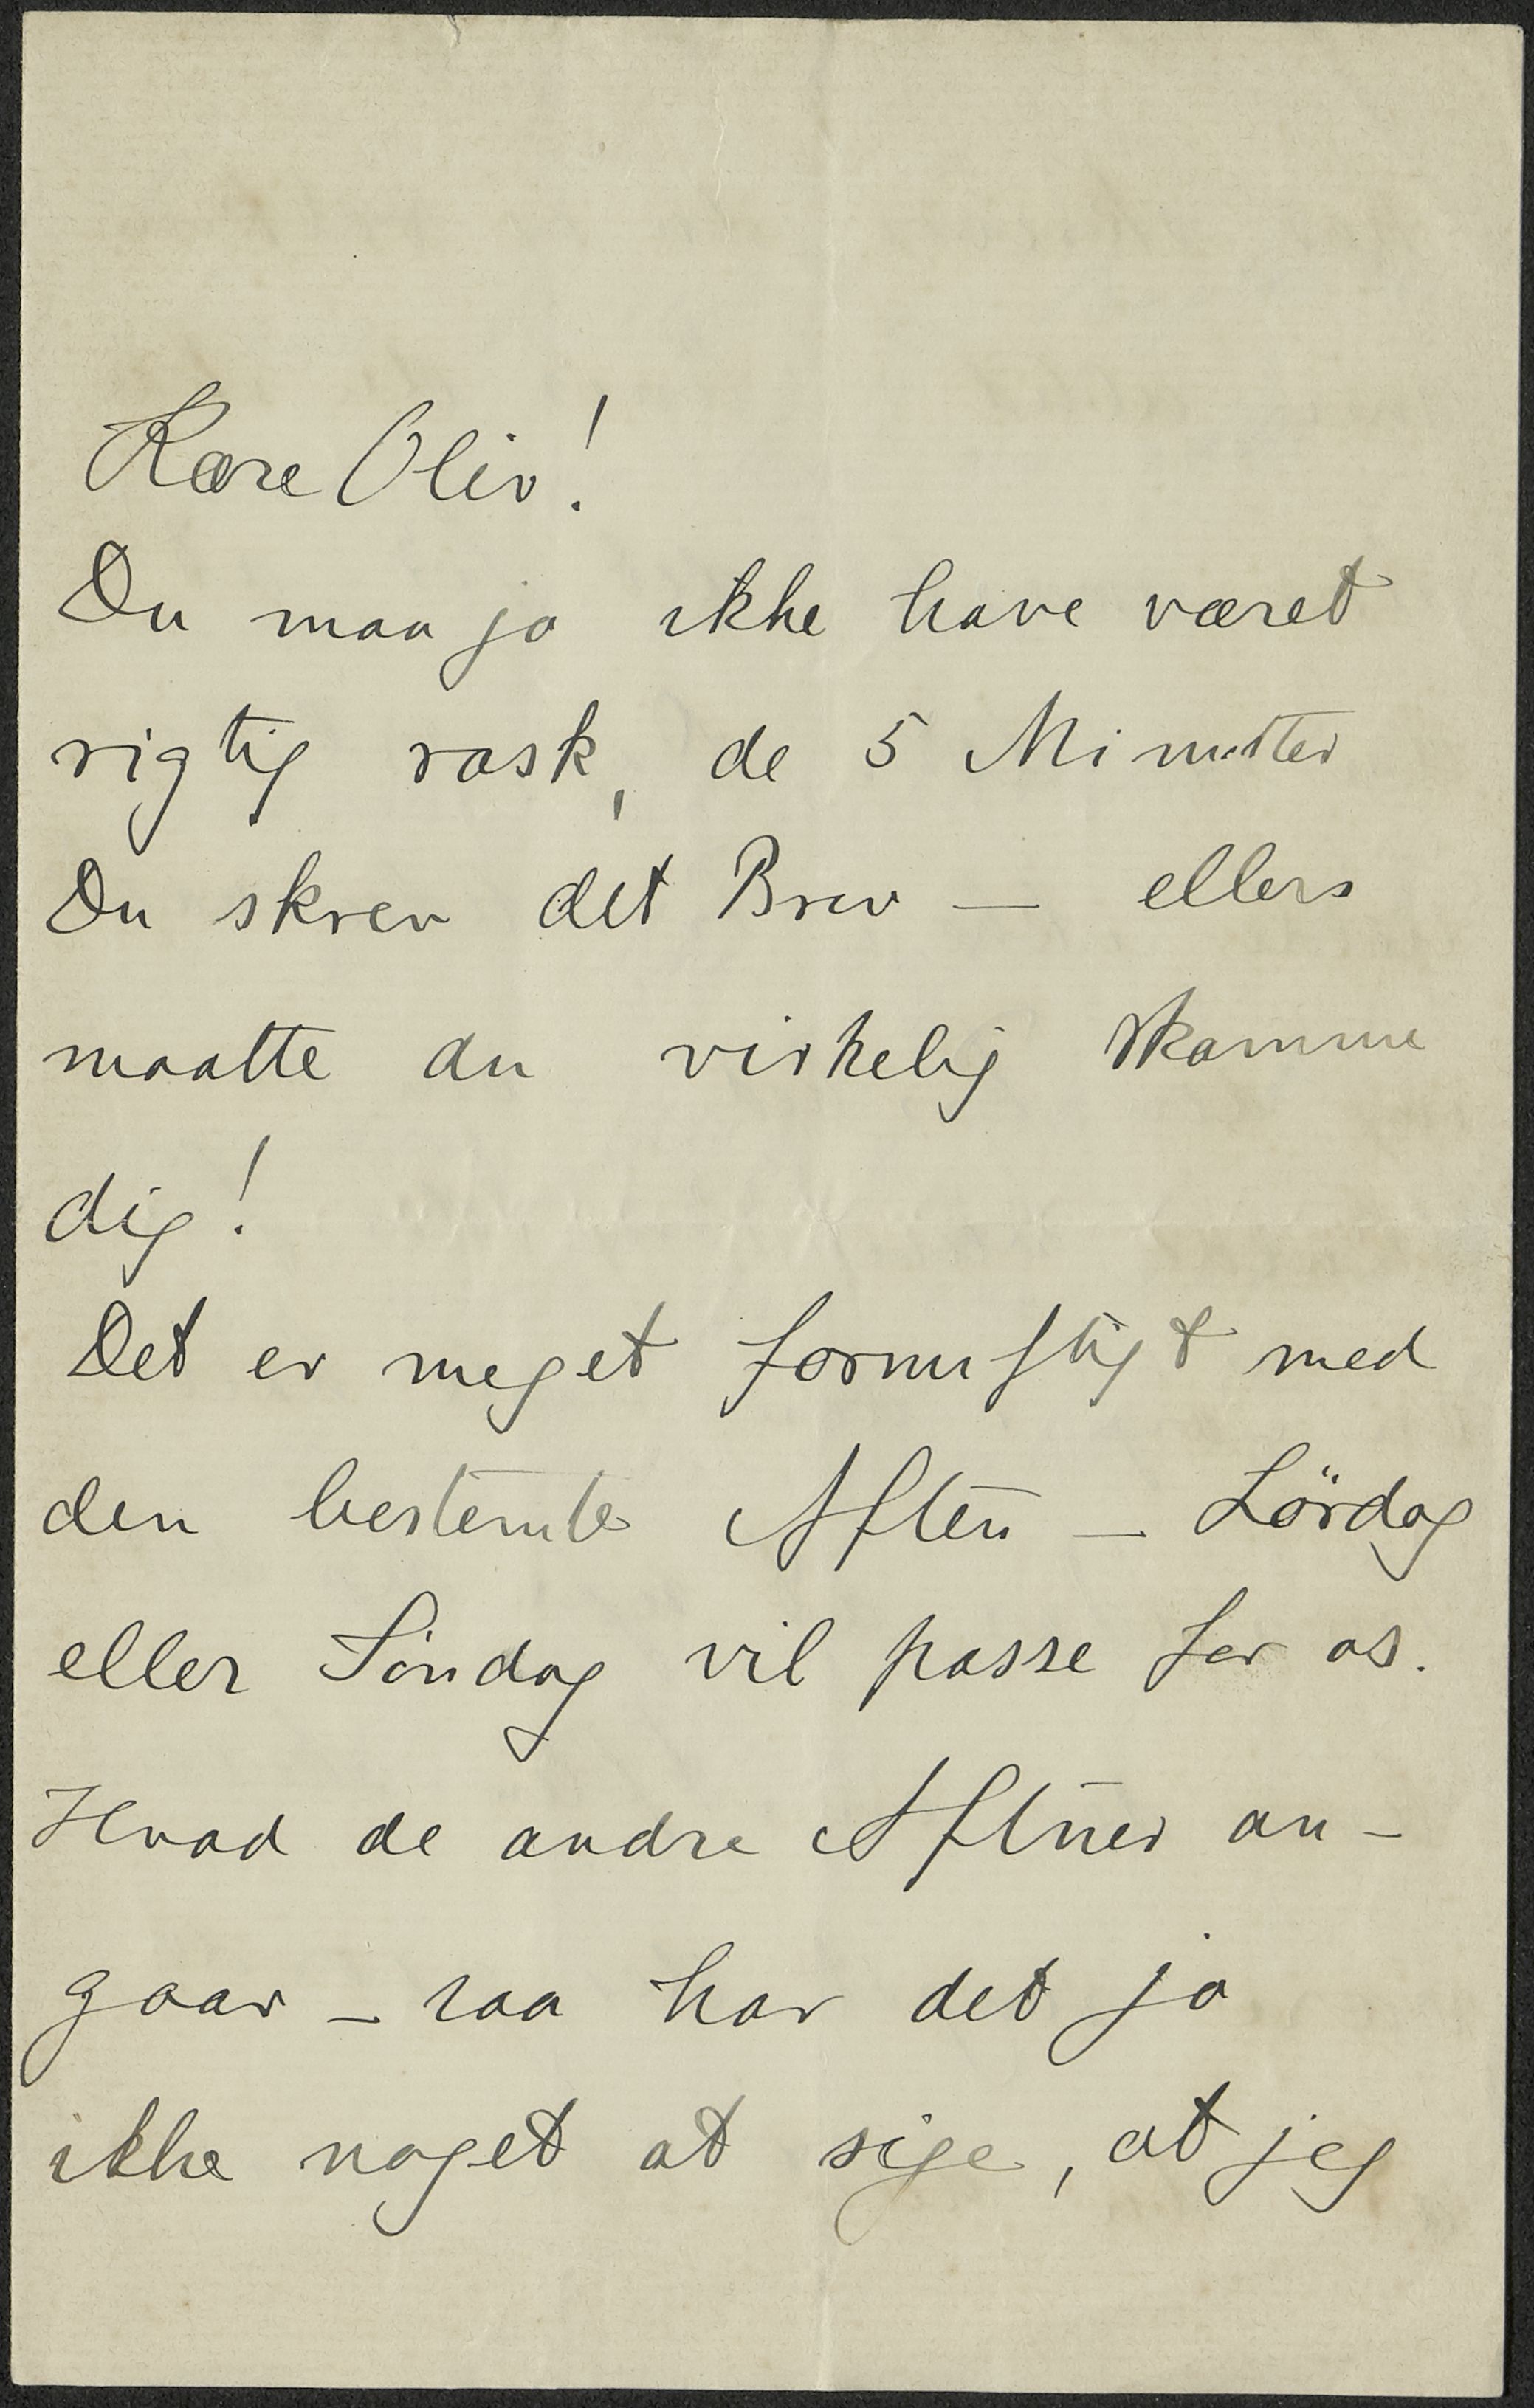 Kære Oliv!
Du maa jo ikke have været
rigtig rask, de 5 Minutter
Du skrev det Brev — ellers
maatte du virkelig skamme
dig!
Det er meget fornuftigt med
den bestemte Aften — Lördag
eller Söndag vil passe for os.
Hvad de andre Aftner an-
gaar — saa har det jo
ikke noget at sige, at jeg